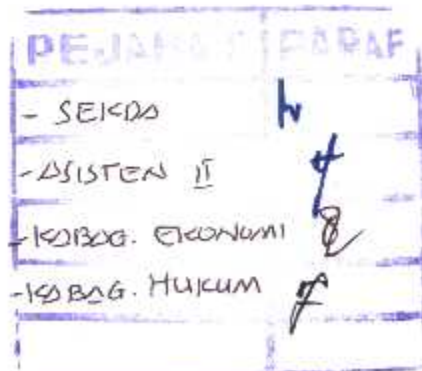 PEJABAT PARAF
- SEKDA
- ASISTEN II
- KABAG. EKONOMI
- KABAG. HUKUM